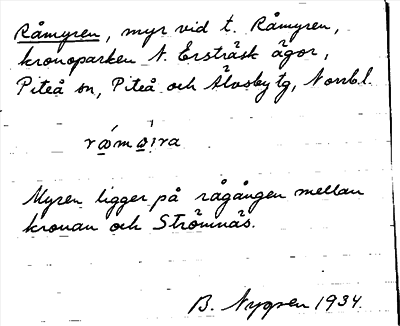 Råmyren, myr vid t. Råmyren,
kronoparken N. Ersträsk ägor,
Piteå sn, Piteå och Älvsby tg, Norrb. l.
Myren ligger på rågången mellan
kronan och Strömnäs.
B. Nygren 1934.